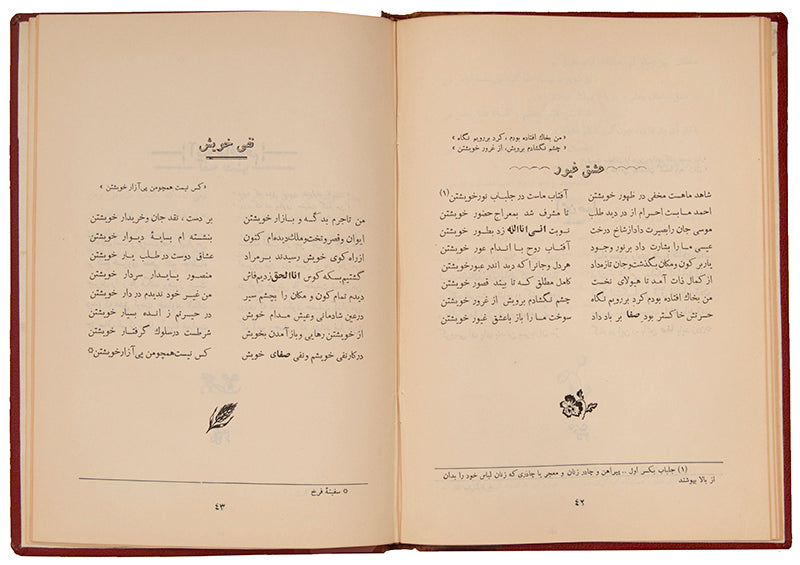 «من بخاك افتاده بودم، كرد برويم نگاه»
«چشم نگشادم برويش، از غرور خويشتن»
عشق غيور
شاهد ماهست مخفى در ظهور خويشتن آفتاب ماست در جلباب نور خويشتن (۱)
احمد ماست احرام از در ديد طلب تا مشرف شد بمعراج حضور خويشتن
موسى جان را بصيرت داد از شاخ درخت نوبت انى انا الله زد بطور خويشتن
عيسى ما را بشارت داد بر نور وجود آفتاب روح با اندام عور خويشتن
يار بر كون و مكان بگذشت و جان تازه داد هر دل و جانرا كه ديد اندر عبور خويشتن
از كمال ذات آمد تا هيولاى نخست كامل مطلق كه تا بيند قصور خويشتن
من بخاك افتاده بودم كرد بررويم نگاه چشم نگشادم برويش از غرور خويشتن
حسرتش خاكستر بود صفا بر باد داد سوخت ما را باز با عشق غيور خويشتن
(۱) جلباب بكسر اول .. پيراهن و چادر زنان و معجر يا چادرى كه زنان لباس خود را بدان
از بالا بپوشند
۴۲
نفى خويش
«كس نيست همچو من پى آزار خويشتن»
من تاجرم بدكه و بازار خويشتن بر دست، نقد جان و خريدار خويشتن
ايوان و قصر و تخت و ملك ديده‌ام كنون بنشسته ام بپايهٔ ديوار خويشتن
از راه كوى خويش رسيدند بر مراد عشاق دوست در طلب يار خويشتن
گشتيم بسكه كوس انا الحق زديم فاش منصور پايدار سردار خويشتن
ديدم تمام كون و مكان را بچشم سير من غير خود نديدم در دار خويشتن
در عين شادمانى و عيش مدام خويش در حيرتم ز انده بسيار خويشتن
از خويشتن رهايى و باز آمدن بخويش شرطست در سلوك گرفتار خويشتن
در كار نفى خويشم و نفى صفاى خويش كس نيست همچو من پى آزار خويشتن○
○ سفينهٔ فرخ
۴۳